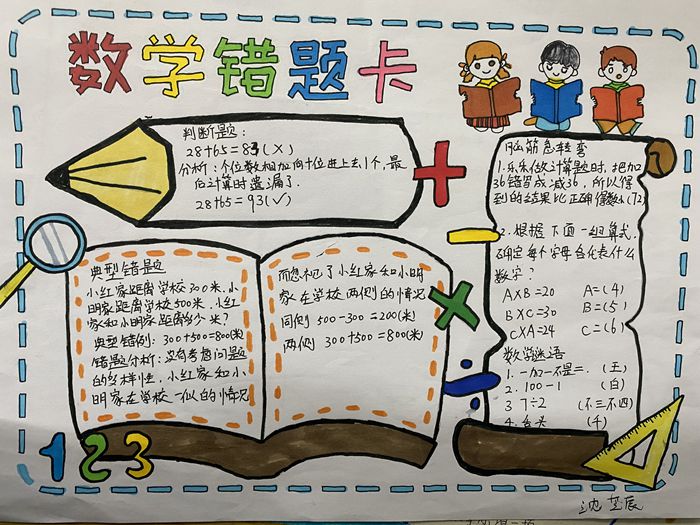 数学错题卡
判断题:
28+65=83(×)
分析:个位数相加向十位进上去1个,最
后计算时遗漏了.
28+65=93(✓)
典型错题
小红家距离学校300米.小
明家距离学校500米.小红
家和小明家距离多少米?
典型错例:300+500=800(米)
错题分析:没有考虑问题
的多样性,小红家和小
明家在学校一侧的情况
而忽视了小红家和小明
家在学校两侧的情况
同侧 500-300=200(米)
两侧 300+500=800(米)
脑筋急转弯
1.乐乐做计算题时,把加
36错写成减36,所以得
到的结果比正确得数小(72)
2.根据下面一组算式.
确定每个字母各代表什么
数字?
A×B=20 A=(4)
B×C=30 B=(5)
C×A=24 C=(6)
数学谜语
1.一加一不是二. (王)
2.100-1 (白)
3 7÷2 (不三不四)
123
沈芷辰